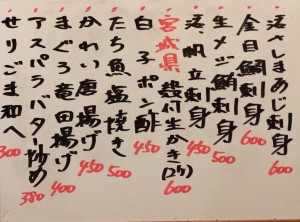 活〆さしまあじ刺身
金目鯛刺身 600
生メジ鮪刺身 500
活〆帆立刺身 450
宮城県 殻付生かき(2ケ) 600
白子ポン酢 450
たち魚塩焼き 500
かわい唐揚げ 450
まぐろ竜田揚げ 400
アスパラバター炒め 380
せりごま和へ 300